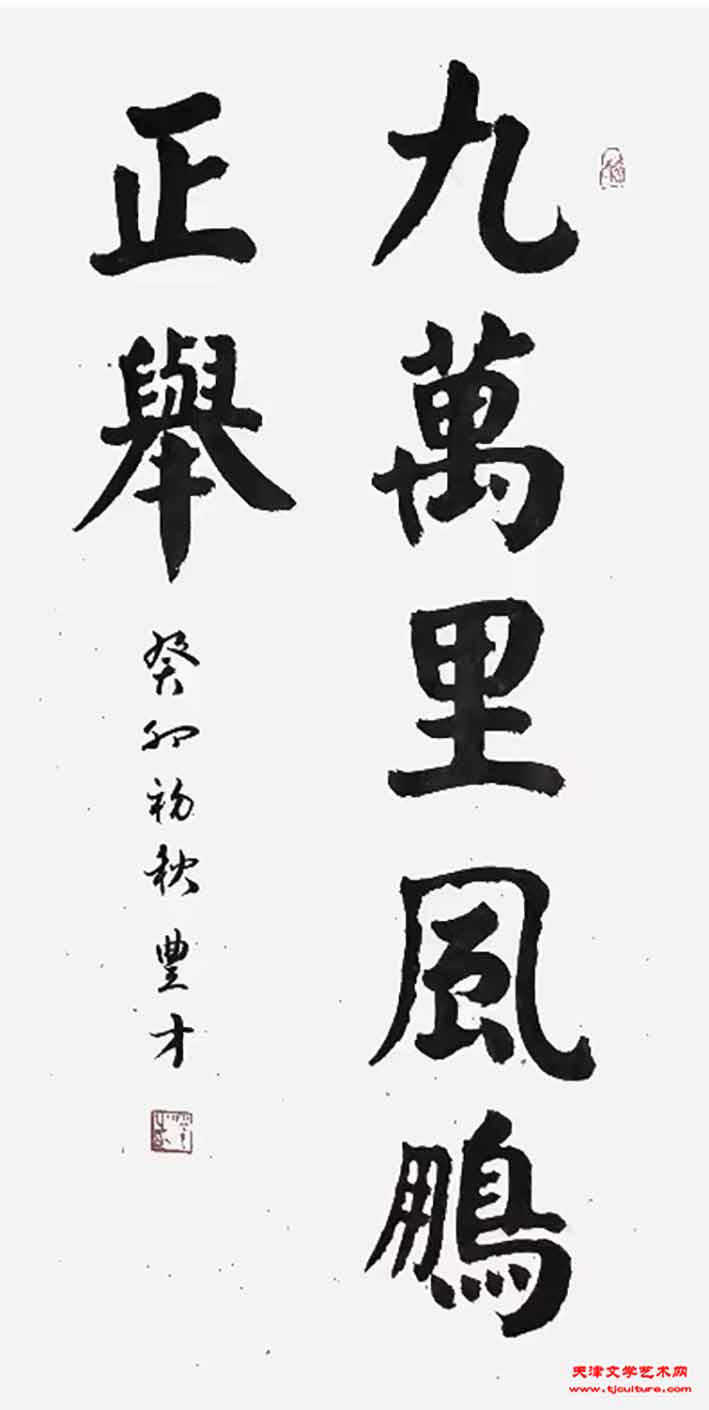 九萬里風鵬
正舉
癸卯初秋豐才
天津文学艺术网
www.tjculture.com